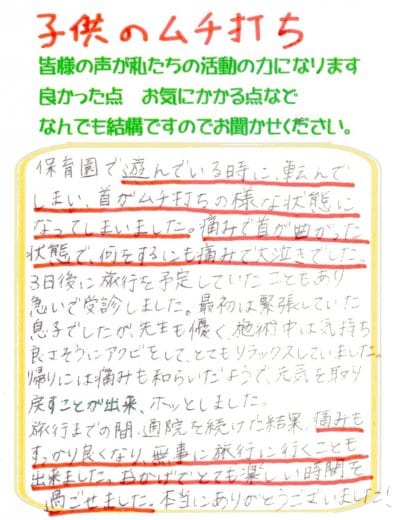 子供のムチ打ち
皆様の声が私たちの活動の力になります
良かった点　お気にかかる点など
なんでも結構ですのでお聞かせください。
保育園で遊んでいる時に、転んで
しまい、首がムチ打ちの様な状態に
なってしまいました。痛みで首が曲がった
状態で、何をするにも痛みで大泣きでした。
3日後に旅行を予定していたこともあり
急いで受診しました。最初は緊張していた
息子でしたが、先生も優く、施術中は気持ち
良さそうにアクビをして、とてもリラックスしていました。
帰りには痛みも和らいだようで、元気を取り
戻すことが出来、ホッとしました。
旅行までの間、通院を続けた結果、痛みも
すっかり良くなり、無事に旅行に行くことも
出来ました。おかげでとても楽しい時間を
過ごせました。本当にありがとうございました！